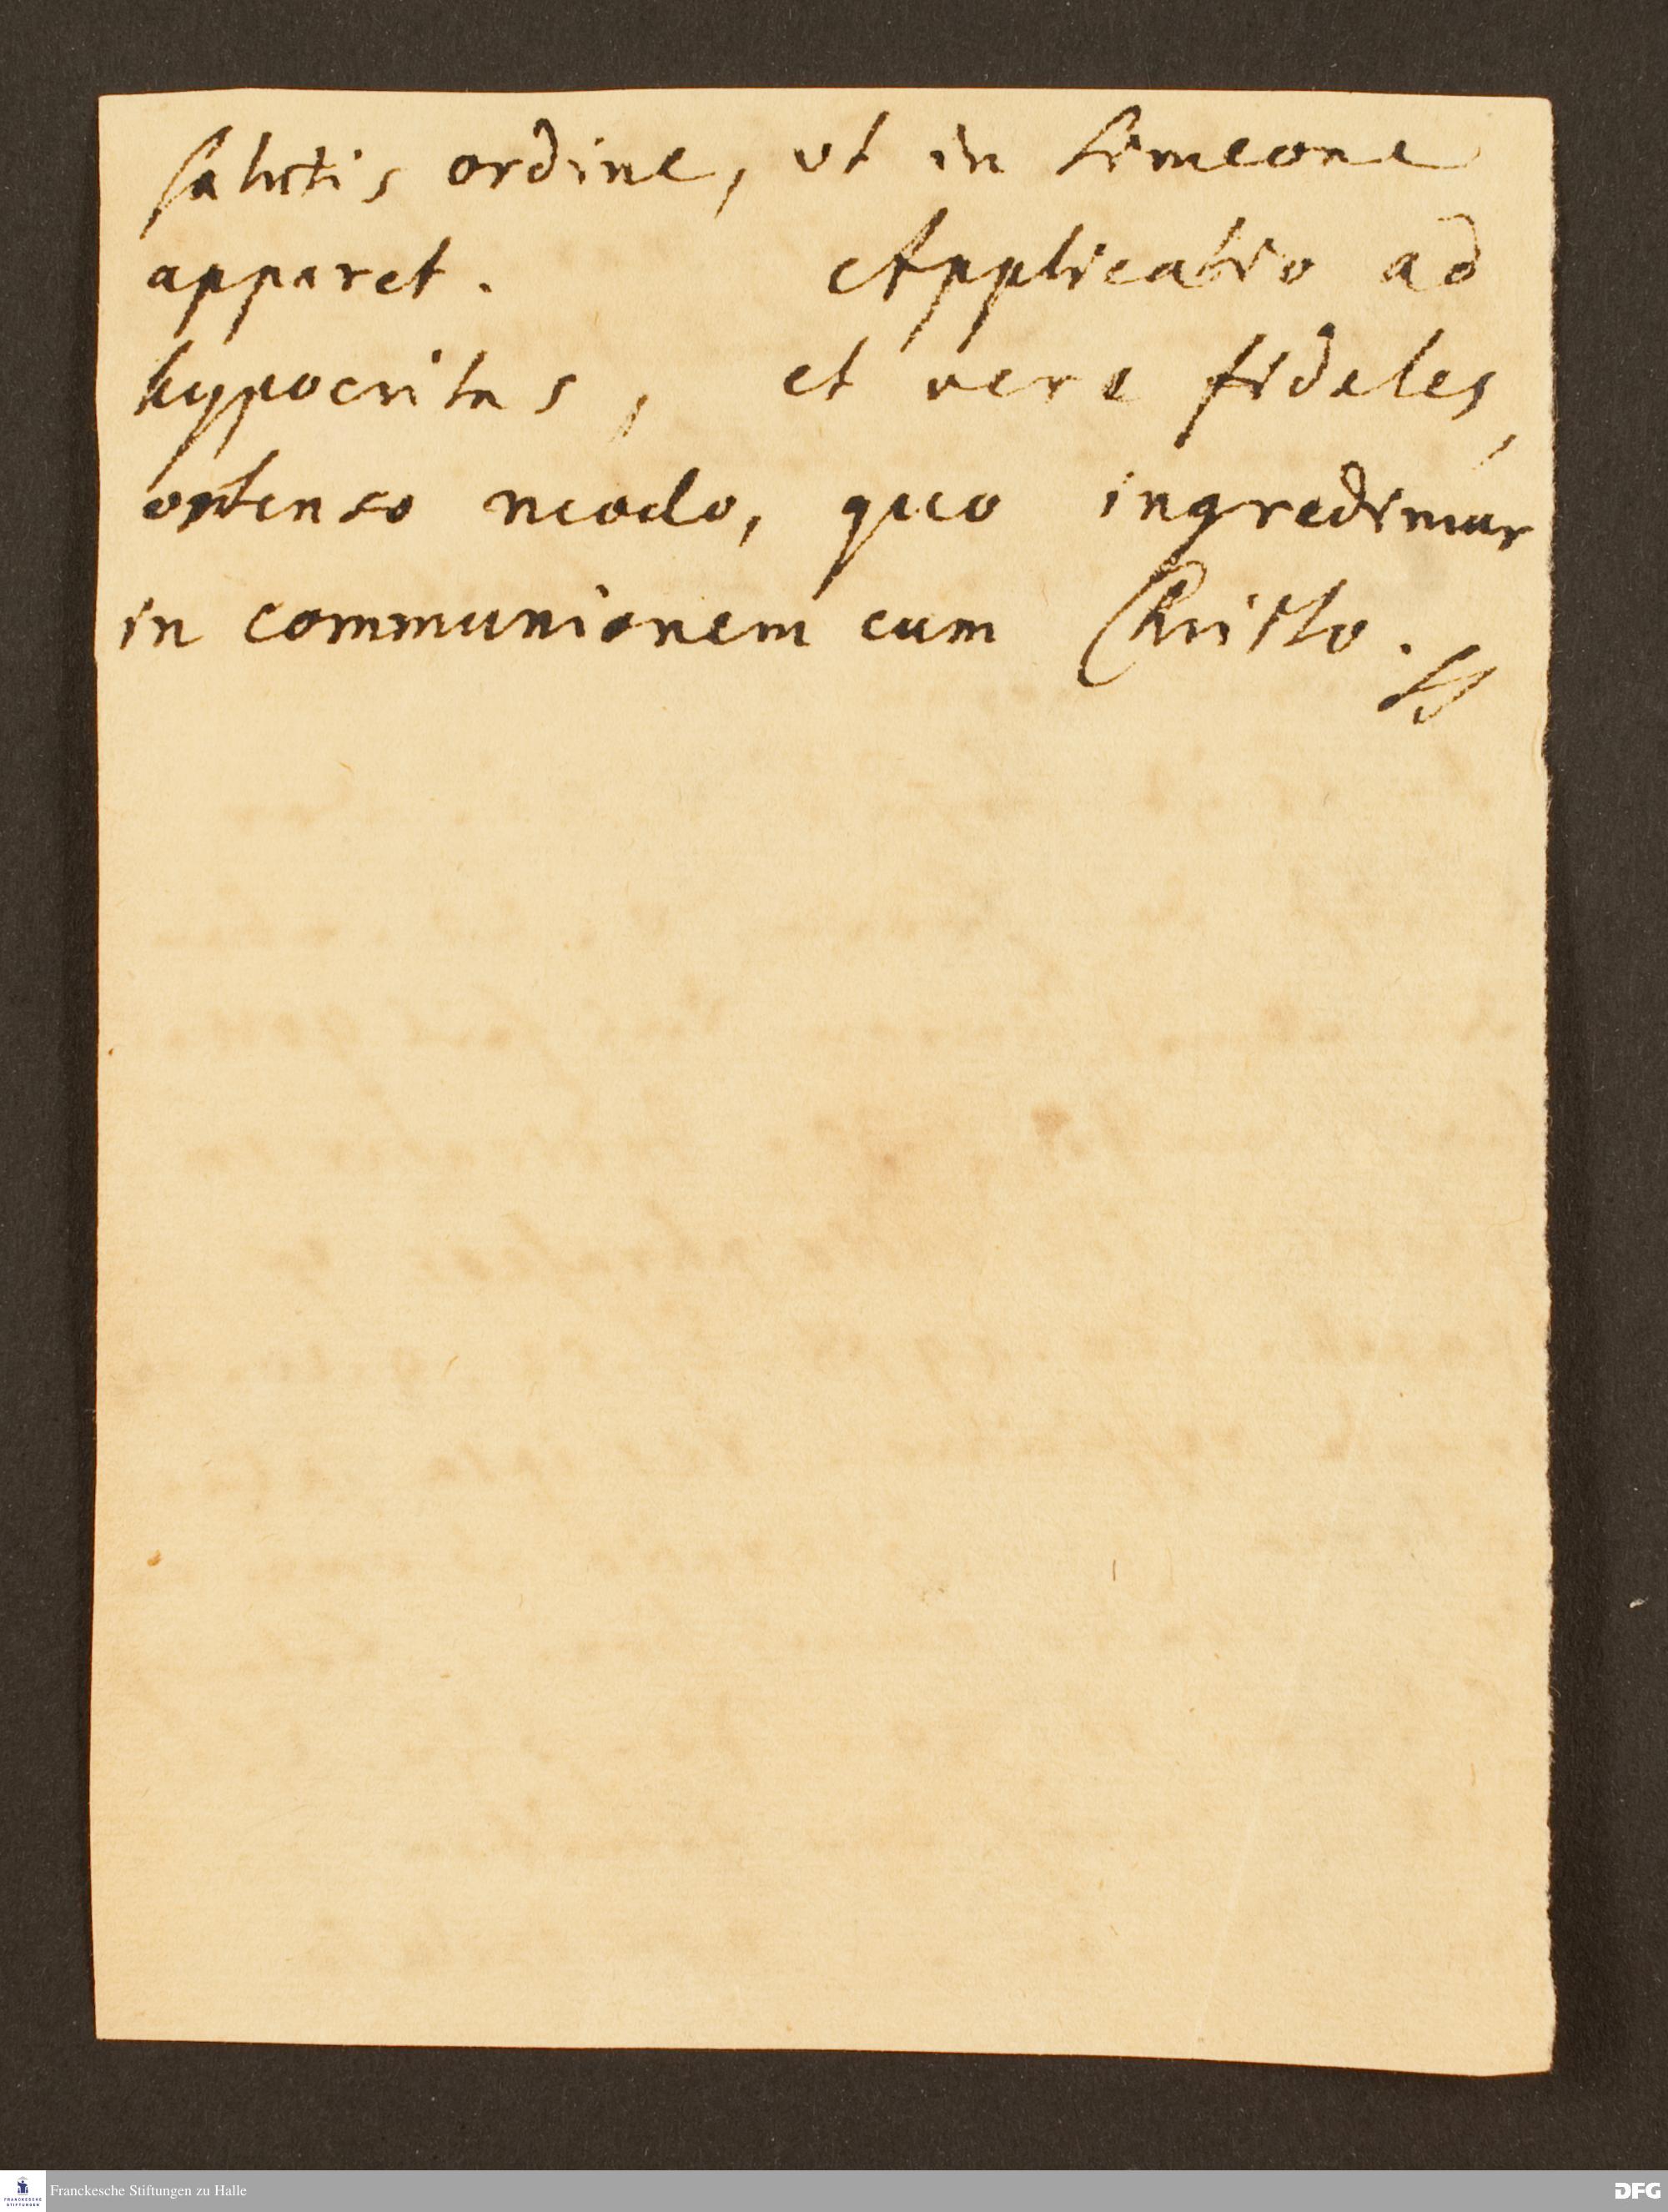 salutis ordine, ut in Simeone
apparet. Applicatio ad
hypocritas, et vere fideles,
ostenso modo, quo ingredimur
in communionem cum Christo.
FRANCKESCHE STIFTUNGEN
Franckesche Stiftungen zu Halle
DFG